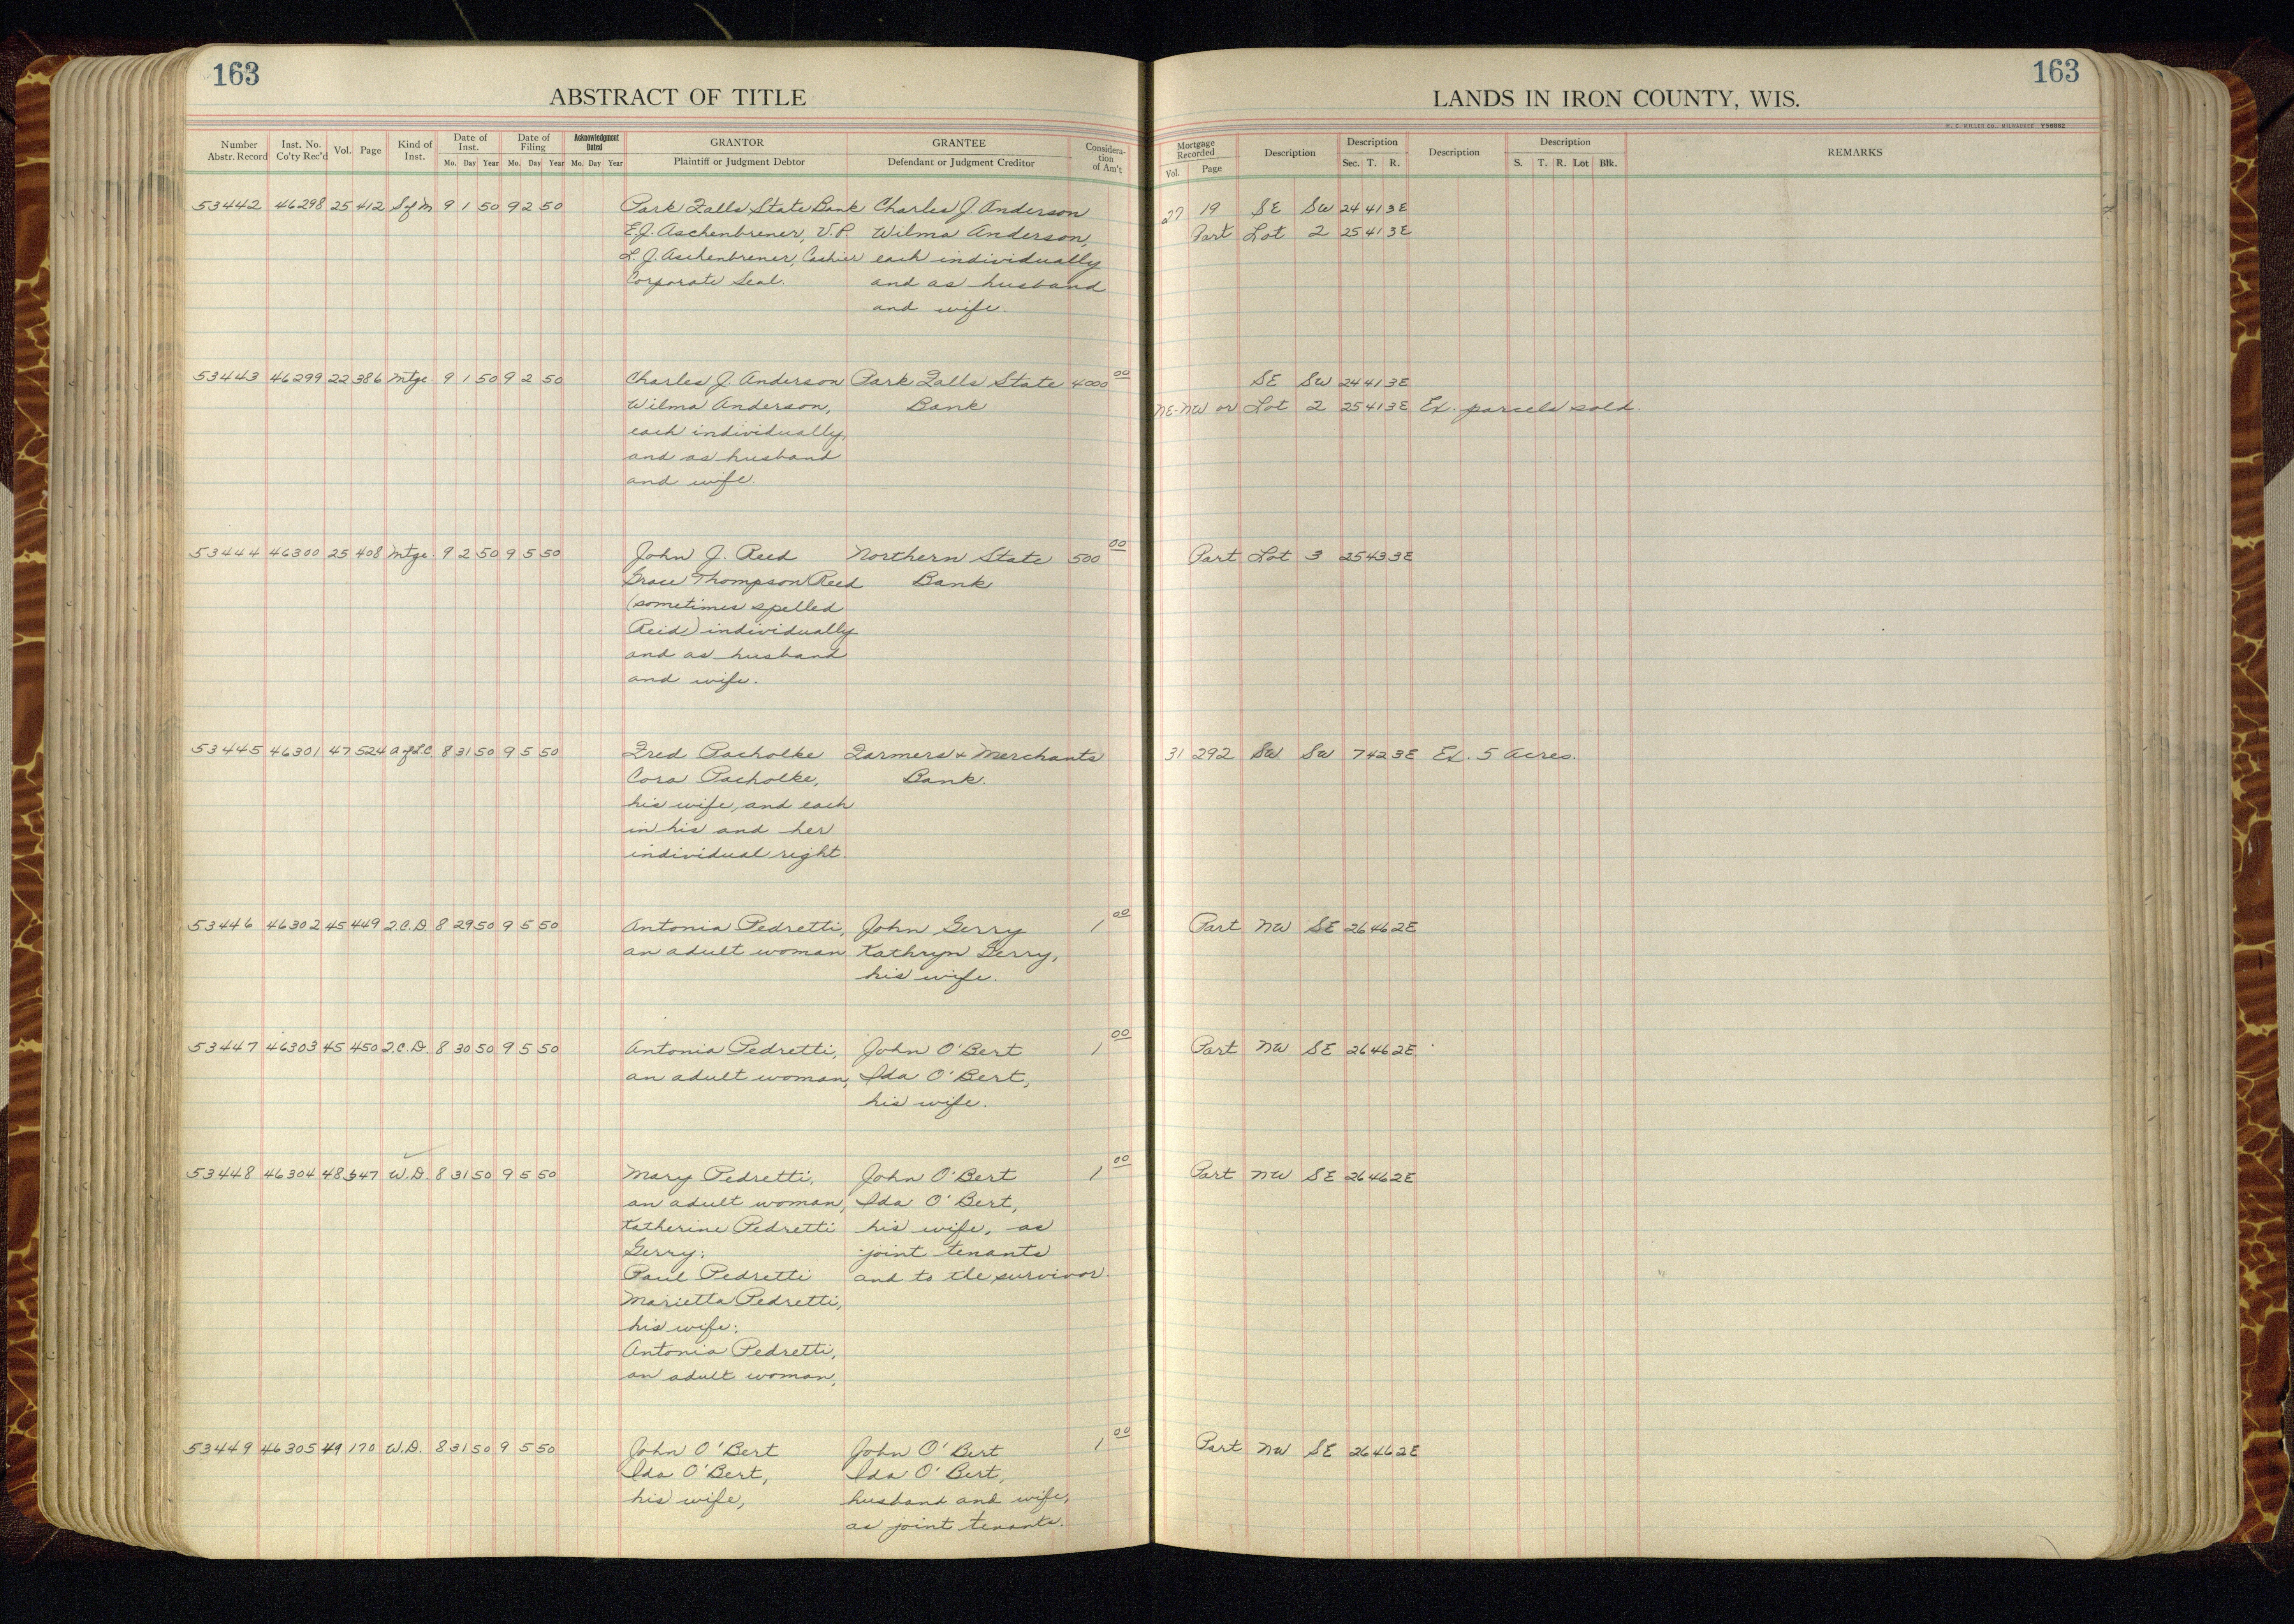 163
ABSTRACT OF TITLE
Number Abstr. Record | Inst. No. Co'ty Rec'd | Vol. | Page | Kind of Inst. | Date of Inst. Mo. Day Year | Date of Filing Mo. Day Year | Acknowledgment Dated Mo. Day Year | GRANTOR Plaintiff or Judgment Debtor | GRANTEE Defendant or Judgment Creditor | Consideration of Am't
53442 46298 25 412 S of M 9 1 50 9 2 50 Park Falls State Bank Charles J. Anderson
E.J. Aschenbrener, V.P. Wilma Anderson,
L.J. Aschenbrener, Cashier each individually
Corporate Seal. and as husband
and wife.
53443 46299 22 386 Mtge. 9 1 50 9 2 50 Charles J. Anderson Park Falls State 4000 00
Wilma Anderson, Bank
each individually,
and as husband
and wife.
53444 46300 25 408 Mtge. 9 2 50 9 5 50 John J. Reed Northern State 500 00
Grace Thompson Reed Bank
(sometimes spelled
Reid) individually
and as husband
and wife.
53445 46301 47 524 A of L.C. 8 31 50 9 5 50 Fred Pacholke Farmers & Merchants
Cora Pacholke, Bank.
his wife, and each
in his and her
individual right.
53446 46302 45 449 2.C.D. 8 29 50 9 5 50 Antonia Pedretti, John Gerry 1 00
an adult woman Kathryn Gerry,
his wife.
53447 46303 45 450 2.C.D. 8 30 50 9 5 50 Antonia Pedretti, John O'Bert 1 00
an adult woman, Ida O'Bert,
his wife.
53448 46304 48 347 W.D. 8 31 50 9 5 50 Mary Pedretti, John O'Bert 1 00
an adult woman, Ida O'Bert,
Katherine Pedretti his wife, as
Gerry; joint tenants
Paul Pedretti and to the survivor.
Marietta Pedretti,
his wife;
Antonia Pedretti,
an adult woman,
53449 46305 49 170 W.D. 8 31 50 9 5 50 John O'Bert John O'Bert 1 00
Ida O'Bert, Ida O'Bert,
his wife, husband and wife,
as joint tenants.
163
LANDS IN IRON COUNTY, WIS.
H. C. MILLER CO., MILWAUKEE Y56082
Mortgage Recorded Vol. Page | Description | Description Sec. T. R. | Description | Description S. T. R. Lot Blk. | REMARKS
27 19 SE SW 24 41 3E
Part Lot 2 25 41 3E
SE SW 24 41 3E
NE-NW or Lot 2 25 41 3E Ex. parcels sold.
Part Lot 3 25 43 3E
31 292 SW SW 7 42 3E Ex. 5 Acres.
Part NW SE 26 46 2E
Part NW SE 26 46 2E
Part NW SE 26 46 2E
Part NW SE 26 46 2E